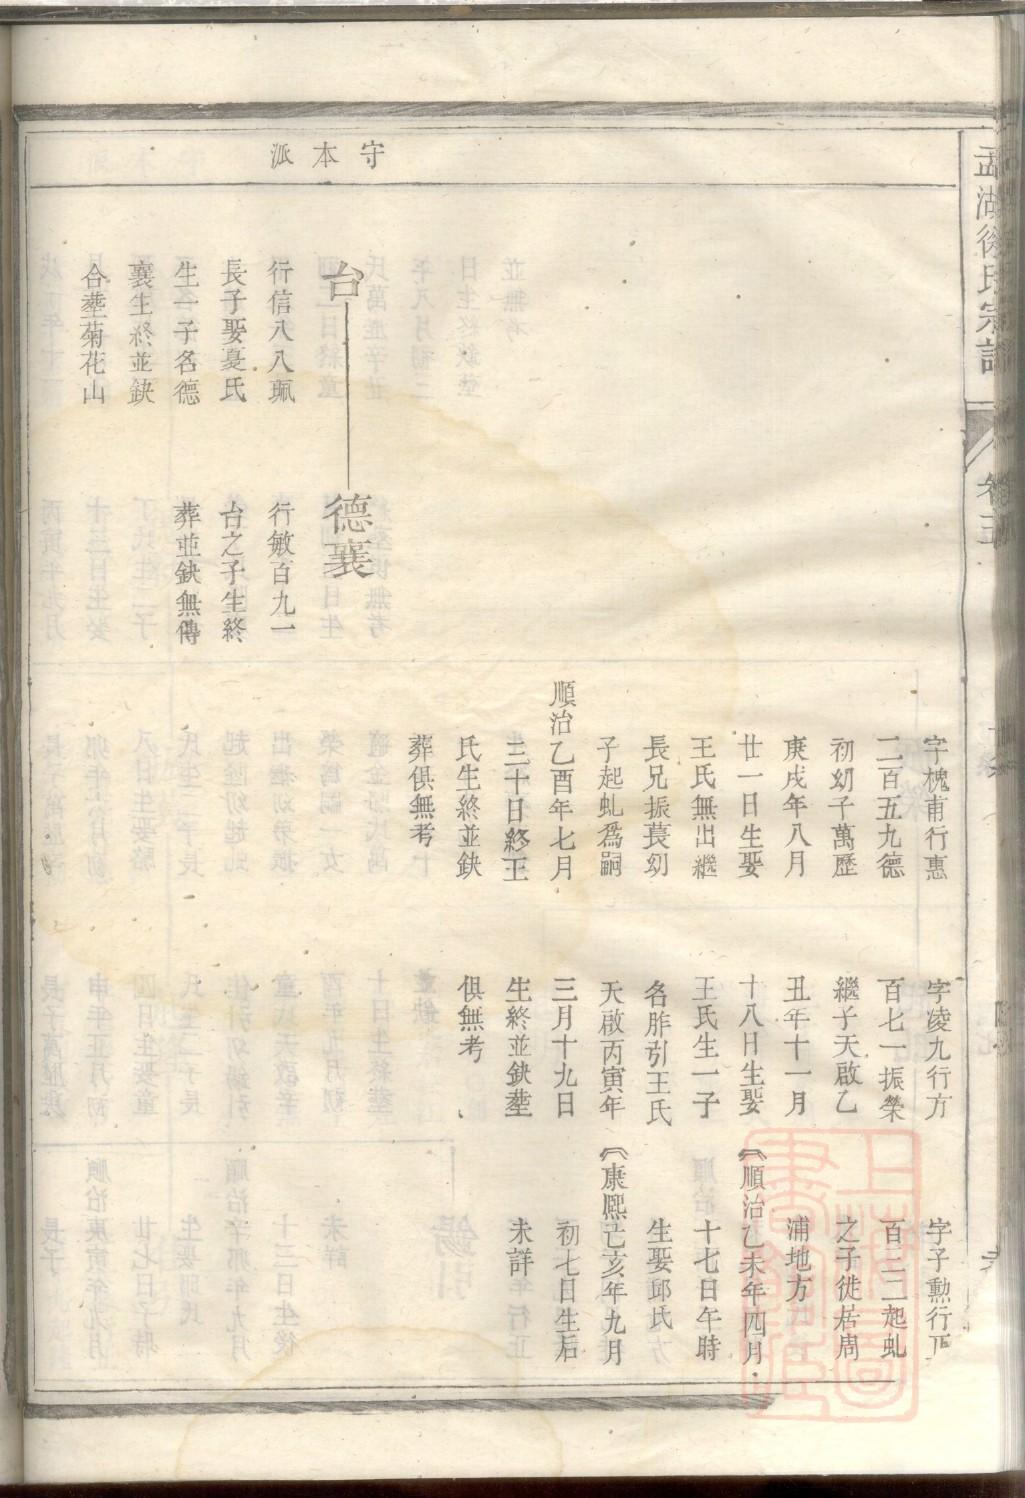 守本派
孟湖徐氏宗譜
卷三
字槐甫行惠
二百五九德
初幼子萬歷
庚戌年八月
廿一日生娶
王氏無出繼
長兄振萇幼
子起虬爲嗣
順治乙酉年七月
三十日終王
氏生終並缺
葬俱無考
字凌九行方
百七一振榮
繼子天啟乙
丑年十一月
十八日生娶
王氏生一子
名胙引王氏
天啟丙寅年
三月十九日
生終並缺塟
俱無考
字子勲行正
百三二起虬
之子徙居周
浦地方
順治乙未年四月
十七日午時
生娶邱氏
康熙亥年九月
初七日生后
未詳
台
行信八八珮
長子娶憂氏
生一子名德
襄生終並缺
合塟菊花山
德襄
行敏百九一
台之子生終
葬並缺無傳